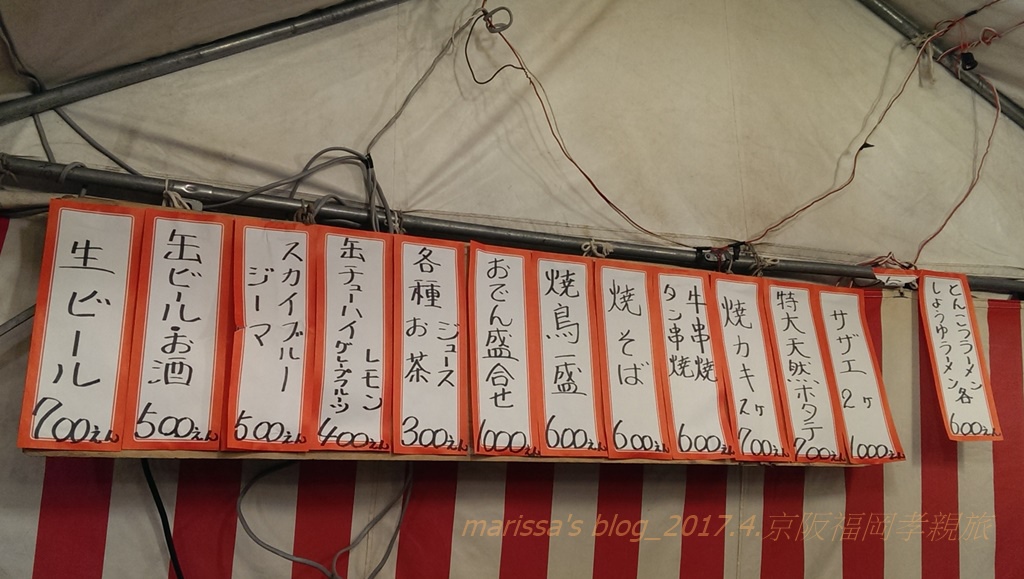 生ビール
700えん
缶ビール・お酒
500えん
スカイブルー
ジーマ
500えん
缶チューハイ
レモン
グレープフルーツ
400えん
各種
ジュース
お茶
300えん
おでん盛合せ
1000えん
焼鳥一盛
600えん
焼そば
600えん
牛串焼
タン串焼
600えん
焼カキ
2ヶ
700えん
特大天然ホタテ
700えん
サザエ
2ヶ
1000えん
とんこつラーメン
しょうゆラーメン
各
600えん
marissa's blog_2017.4.京阪福岡孝親旅